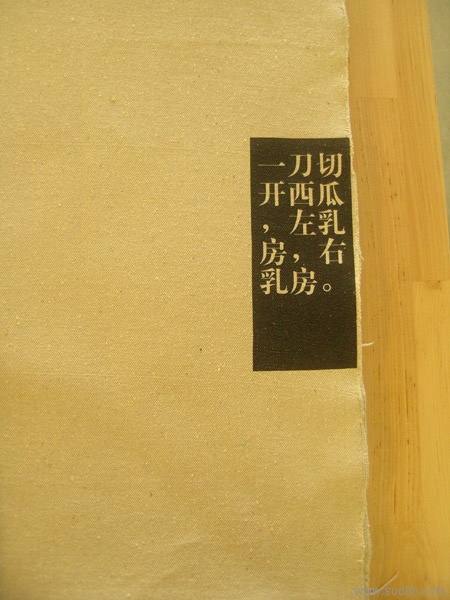 一刀切
开西瓜
，左乳
房，右
乳房。